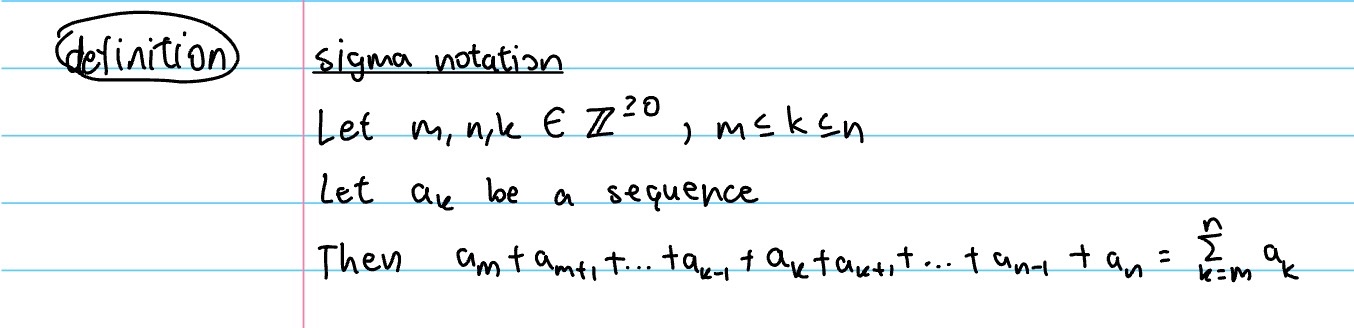 definition
sigma notation
Let m, n, k ∈ ℤ^≥0 , m ≤ k ≤ n
Let a_k be a sequence
Then a_m + a_{m+1} + ... + a_{k-1} + a_k + a_{k+1} + ... + a_{n-1} + a_n = ∑_{k=m}^{n} a_k